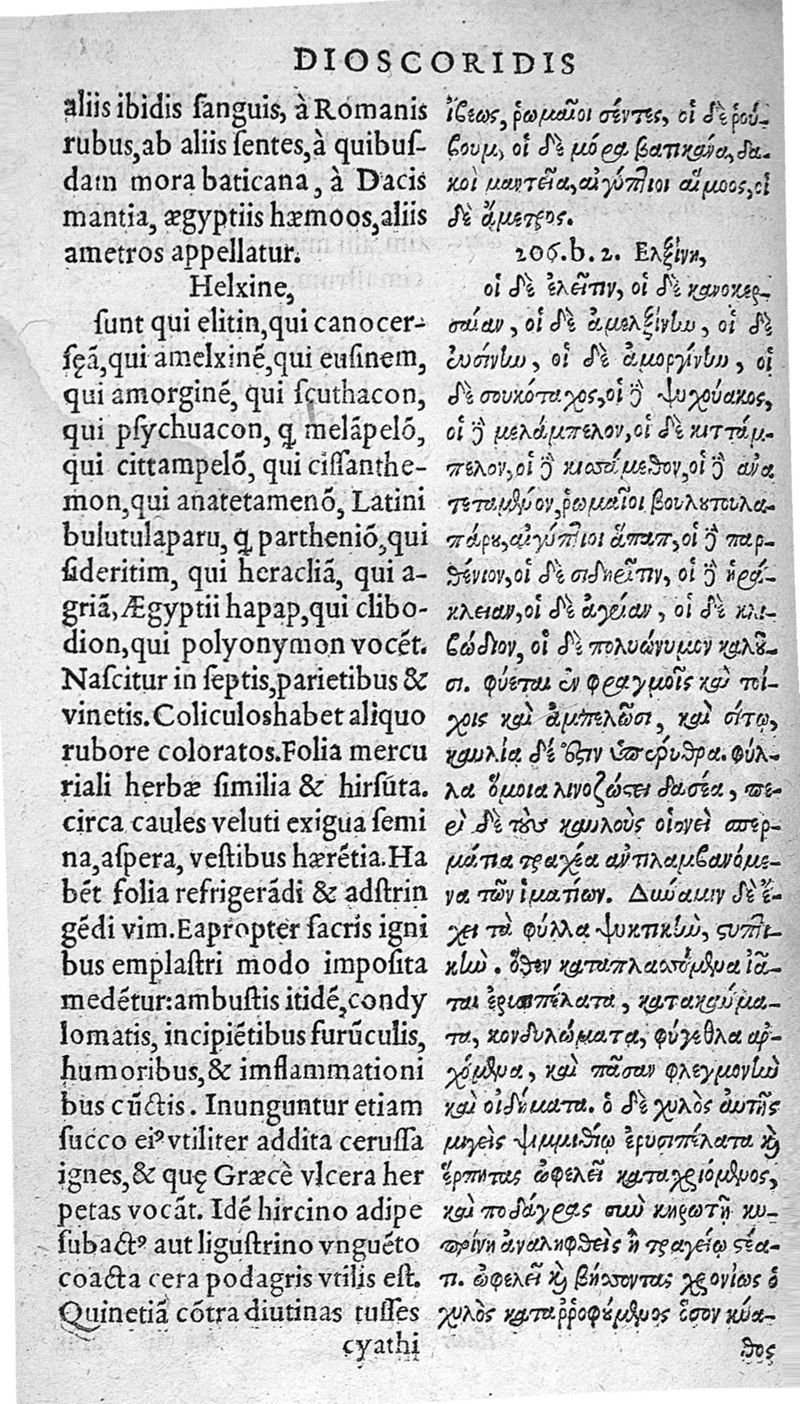 DIOSCORIDIS
aliis ibidis ſanguis, à Romanis
rubus,ab aliis ſentes,à quibuſ-
dam mora baticana, à Dacis
mantia, ægyptiis hæmoos,aliis
ametros appellatur.
Helxine,
ſunt qui elitin,qui canocer-
ſęã,qui amelxinẽ,qui euſinem,
qui amorginẽ, qui ſcuthacon,
qui pſychuacon, ꝗ melãpelõ,
qui cittampelõ, qui ciſſanthe-
mon,qui anatetamenõ, Latini
bulutulaparu, ꝗ partheniõ,qui
ſideritim, qui heracliã, qui a-
griã, Ægyptii hapap,qui clibo-
dion,qui polyonymon vocẽt.
Naſcitur in ſeptis,parietibus &
vinetis.Coliculoshabet aliquo
rubore coloratos.Folia mercu
riali herbæ ſimilia & hirſuta.
circa caules veluti exigua ſemi
na,aſpera, veſtibus hærẽtia.Ha
bẽt folia refrigerãdi & adſtrin
gẽdi vim.Eapropter ſacris igni
bus emplaſtri modo impoſita
medẽtur:ambuſtis itidẽ,condy
lomatis, incipiẽtibus furũculis,
humoribus,& imflammationi
bus cũctis. Inunguntur etiam
ſucco eiꝰ vtiliter addita ceruſſa
ignes,& quę Græcè vlcera her
petas vocãt. Idẽ hircino adipe
ſubactꝰ aut liguſtrino vnguẽto
coacta cera podagris vtilis eſt.
Quinetiã cõtra diutinas tuſſes
cyathi
ἴβεως, ῥωμαῖοι σέντες, οἱ δὲ ῥού-
βουμ, οἱ δὲ μόρα βατικάνα, δα-
κοὶ μαντεῖα, αἰγύπτιοι αἵμοος, οἱ
δὲ ἄμετρος.
206.b.2. Ελξίνη,
οἱ δὲ ἐλεῖτιν, οἱ δὲ κανοκερ-
σαίαν, οἱ δὲ ἀμελξίνην, οἱ δὲ
ἐυσίνην, οἱ δὲ ἀμοργίνην, οἱ
δὲ σουκόταχος, οἱ ϳ ψυχούακος,
οἱ ϳ μελάμπελον, οἱ δὲ κιττάμ-
πελον, οἱ ϳ κιασάμεθον, οἱ ϳ ἀνα
τεταμένον, ῥωμαῖοι βουλουτουλα-
πάρου, αἰγύπτιοι ἅπαπ, οἱ ϳ παρ-
θένιον, οἱ δὲ σιδηρῖτιν, οἱ ϳ ἡρά-
κλειαν, οἱ δὲ ἀγρίαν, οἱ δὲ κλι-
βώδιον, οἱ δὲ πολυώνυμον καλοῦ-
σι. φύεται ἐν φραγμοῖς καὶ τοί-
χοις καὶ ἀμπελῶσι, καὶ σίτῳ,
καυλία δέ ἐστιν ὑπερύθρα. φύλ-
λα ὅμοια λινοζώστει δασέα, πε-
ρὶ δὲ τοὺς καυλοὺς οἱονεὶ σπερ-
μάτια τραχέα ἀντιλαμβανόμε-
να τῶν ἱματίων. Δύναμιν δὲ ἔ-
χει τὰ φύλλα ψυκτικὴν, στυπτι-
κήν. ὅθεν καταπλασσόμενα ἰᾶ-
ται ἐρισιπέλατα, κατακαύμα-
τα, κονδυλώματα, φύγεθλα ἀρ-
χόμενα, καὶ πᾶσαν φλεγμονὴν
καὶ οἰδήματα. ὁ δὲ χυλὸς αὐτῆς
μιγεὶς ψιμμιθίῳ ἐρυσιπέλατα καὶ
ἕρπητας ὠφελεῖ καταχριόμενος,
καὶ ποδάγρας σὺν κηρωτῇ κυ-
πρίνῃ ἀναληφθεὶς ἢ τραγείῳ στέα-
τι. ὠφελεῖ καὶ βήσσοντας χρονίως ὁ
χυλὸς καταῤῥοφούμενος ὅσον κύα-
θος